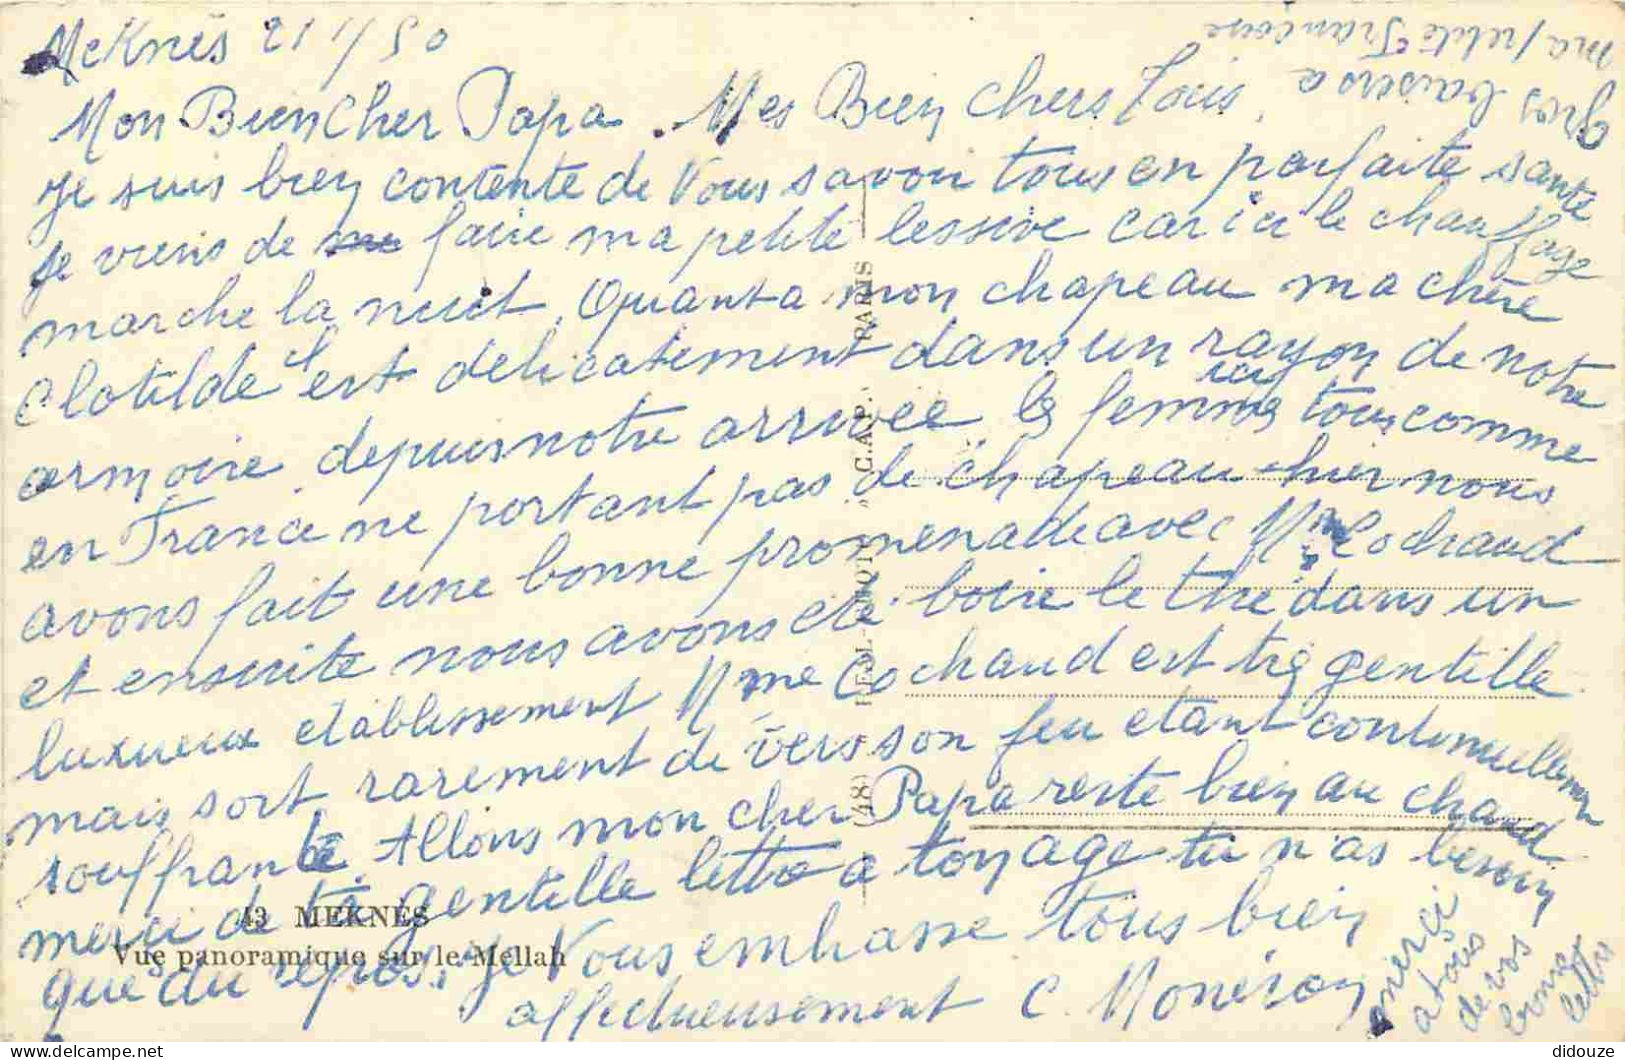 Meknès 21/1/50
Mon Bien Cher Papa. Mes Bien Chers Tous,
Je suis bien contente de Vous savoir tous en parfaite santé
Je viens de faire ma petite lessive car ici le chauffage
marche la nuit. Quant a mon chapeau ma chère
Clotilde il est délicatement dans un rayon de notre
armoire depuis notre arrivée les femmes ici tous comme
en France ne portant pas de chapeau hier nous
avons fait une bonne promenade avec Mme Cochaud
et ensuite nous avons été boire le thé dans un
luxueux etablissement Mme Cochaud est très gentille
mais sort rarement de vers son feu etant continuellement
souffrante. Allons mon cher Papa reste bien au chaud
merci de ta gentille lettre a ton age tu n'as besoin
que du repos. Je Vous embrasse tous bien
affectueusement C. Monéron
merci
a tous
de vos
bonne
lettre
Gros baisers a
ma petite Francoise
43 MEKNÈS
Vue panoramique sur le Mellah
(48) RÉAL-PHOTO „ C.A.P. „ PARIS
didouze